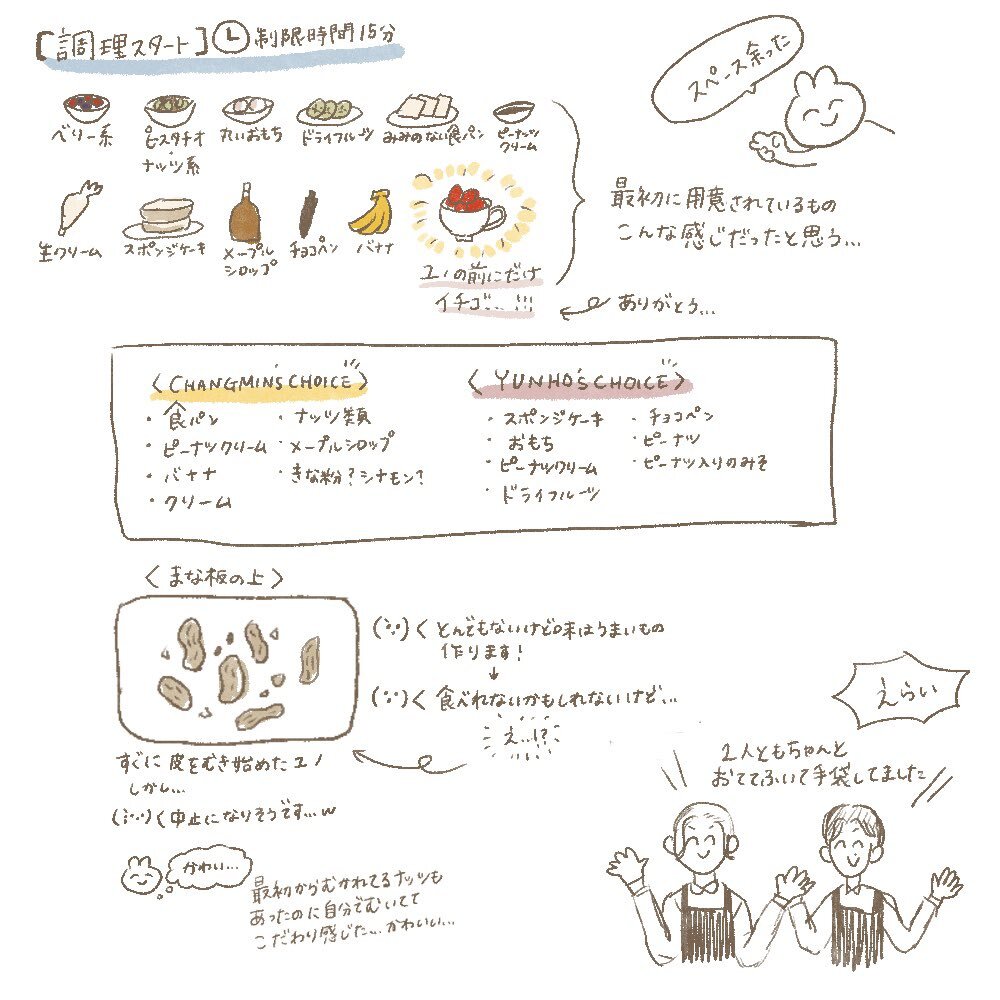 【調理スタート】制限時間15分
スペース余った
ベリー系
ピスタチオ
ナッツ系
丸いおもち
ドライフルーツ
みみのない食パン
ピーナッツ
クリーム
生クリーム
スポンジケーキ
メープル
シロップ
チョコペン
バナナ
ユノの前にだけ
イチゴ...!!!
最初に用意されているもの
こんな感じだったと思う...
ありがとう...
〈CHANGMIN'S CHOICE〉
・食パン
・ピーナツクリーム
・バナナ
・クリーム
・ナッツ類
・メープルシロップ
・きな粉?シナモン?
〈YUNHO'S CHOICE〉
・スポンジケーキ
・おもち
・ピーナツクリーム
・ドライフルーツ
・チョコペン
・ピーナツ
・ピーナツ入りのみそ
〈まな板の上〉
とんでもないけど味はうまいもの
作ります!
↓
食べれないかもしれないけど...
え...!?
すぐに皮をむき始めたユノ
しかし...
中止になりそうです...w
かわい...
最初からむかれてるナッツも
あったのに自分でむいてて
こだわり感じた...かわいい...
えらい
2人ともちゃんと
おててふいて手袋してました